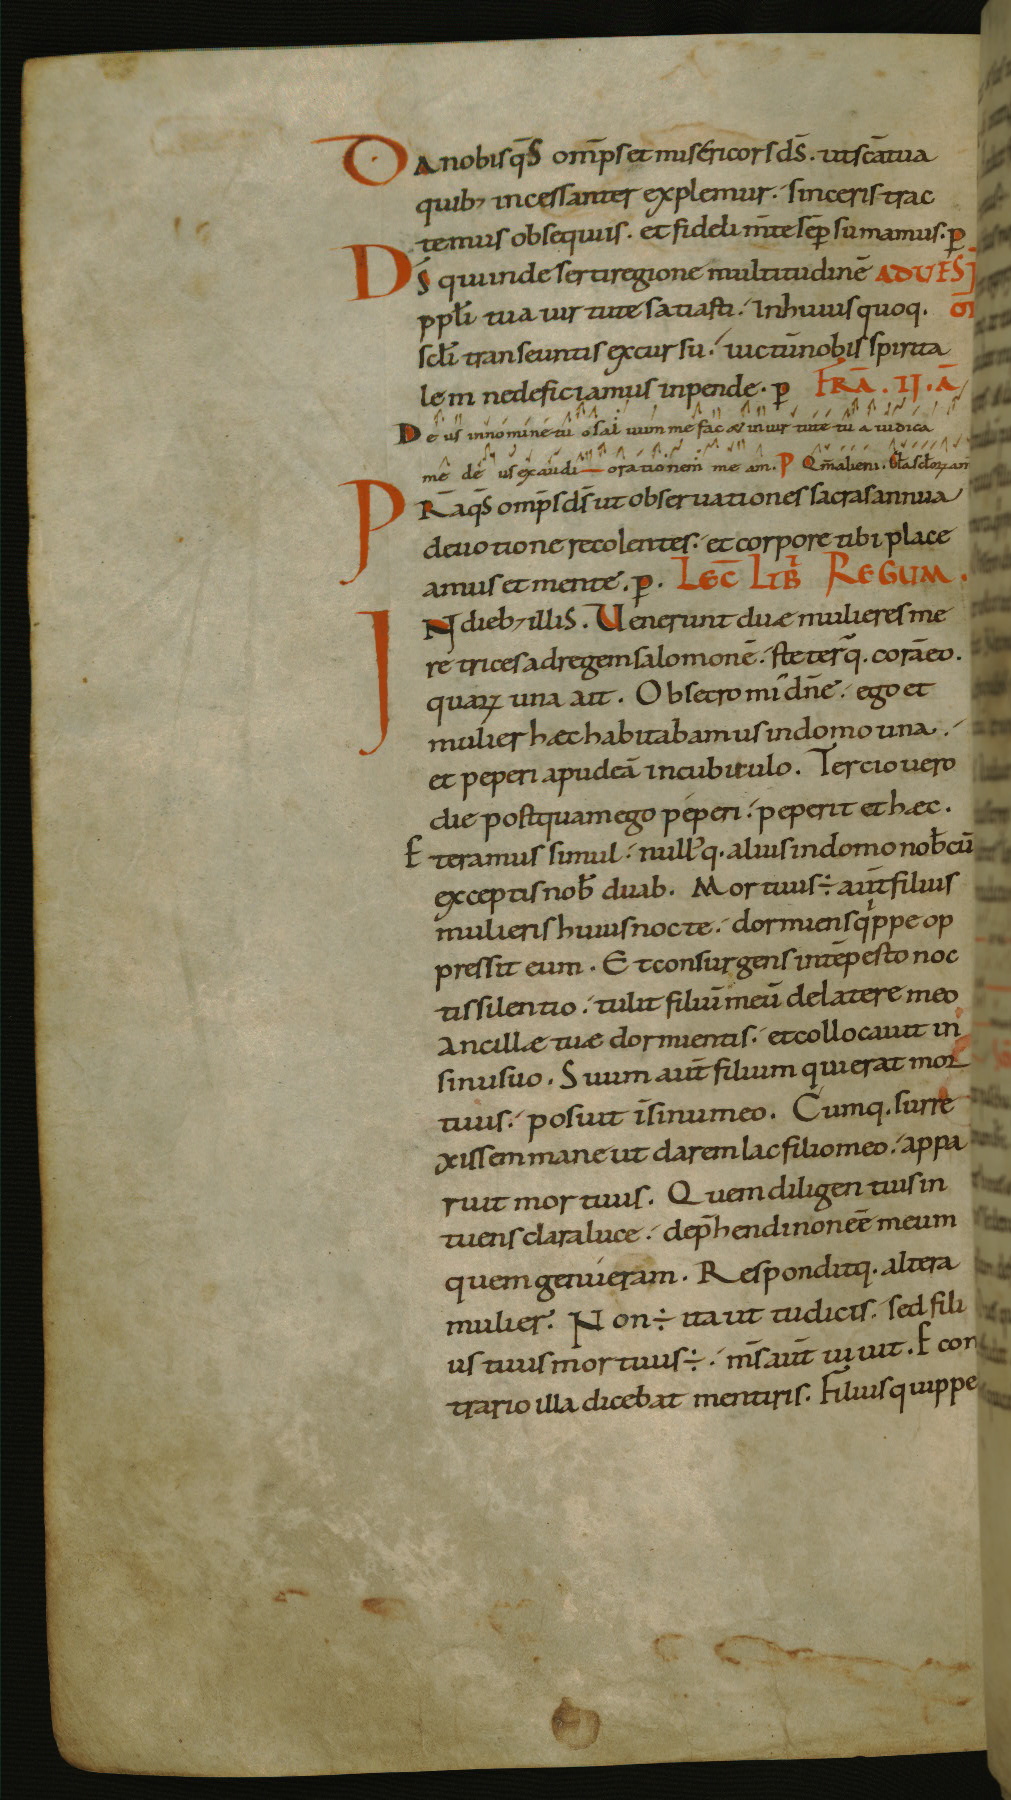 DA nobis q̄s omp̄s et misericors d̄s. ut sc̄a tua
quib; incessanter explemur. sinceris trac
temus obsequiis. et fideli m̄te sēp sumamus. p̄
Dś qui in deserti regione multitudinē AD UESP
pplī tua uirtute satiasti. In huius quoq.
sc̄li transeuntis excursu. uictū nobis spirita
lem ne deficiamus inpende. p̄ FR̄A. II. Ā
Deus in nomine tuo saluum me fac & in uirtute tua iudica
me deus exaudi orationem meam. P Qm̄ alieni.
PR̄A q̄s omp̄s d̄s ut obseruationes sacras annua
deuotione recolentes. et corpore tibi place
amus et mente. p̄. LEC̄ LIB̄ REGUM.
IN dieb; illis. Uenerunt duæ mulieres me
retrices ad regem salomonē. steterq̄. corā eo.
quaꝝ una ait. Obsecro mi dn̄e. ego et
mulier hæc habitabamus in domo una.
et peperi apud eā in cubiculo. Tercio uero
die postquam ego peperi. peperit et hæc.
Et eramus simul. nullꝰq. alius in domo nob̄ cū
exceptis nob̄ duab. Mortuus ÷ aut̄ filius
mulieris huius nocte. dormiens q̍ppe op
pressit eum. Et consurgens intēpesto noc
tis silentio. tulit filiū meū de latere meo
Ancillæ tuæ dormientis. et collocauit in
sinu suo. Suum aut̄ filium qui erat mor
tuus. posuit ī sinu meo. Cumq. surre
xissem mane ut darem lac filio meo. appa
ruit mortuus. Quem diligentius in
tuens clara luce. dep̄hendi non eē̄ meum
quem genueram. Responditq. altera
mulier. Non ÷ ita ut tu dicis. sed fili
us tuus mortuus ÷. m̄s aut̄ uiuit. E con
trario illa dicebat mentiris. Filius quippe